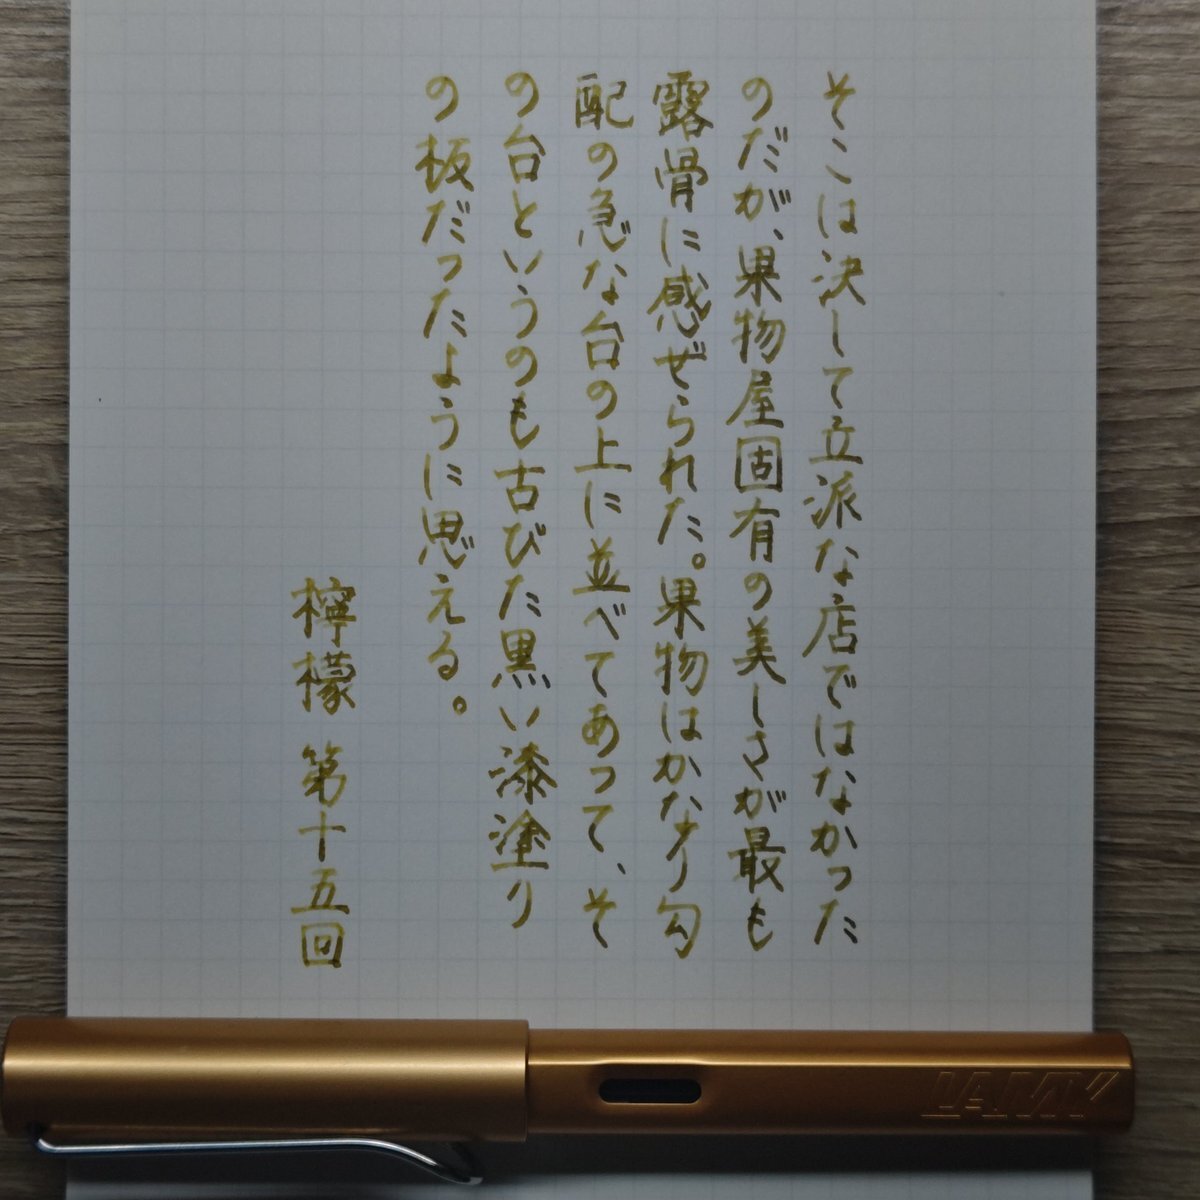 そこは決して立派な店ではなかった
のだが、果物屋固有の美しさが最も
露骨に感ぜられた。果物はかなり勾
配の急な台の上に並べてあって、そ
の台というのも古びた黒い漆塗り
の板だったように思える。
檸檬 第十五回
LAMY